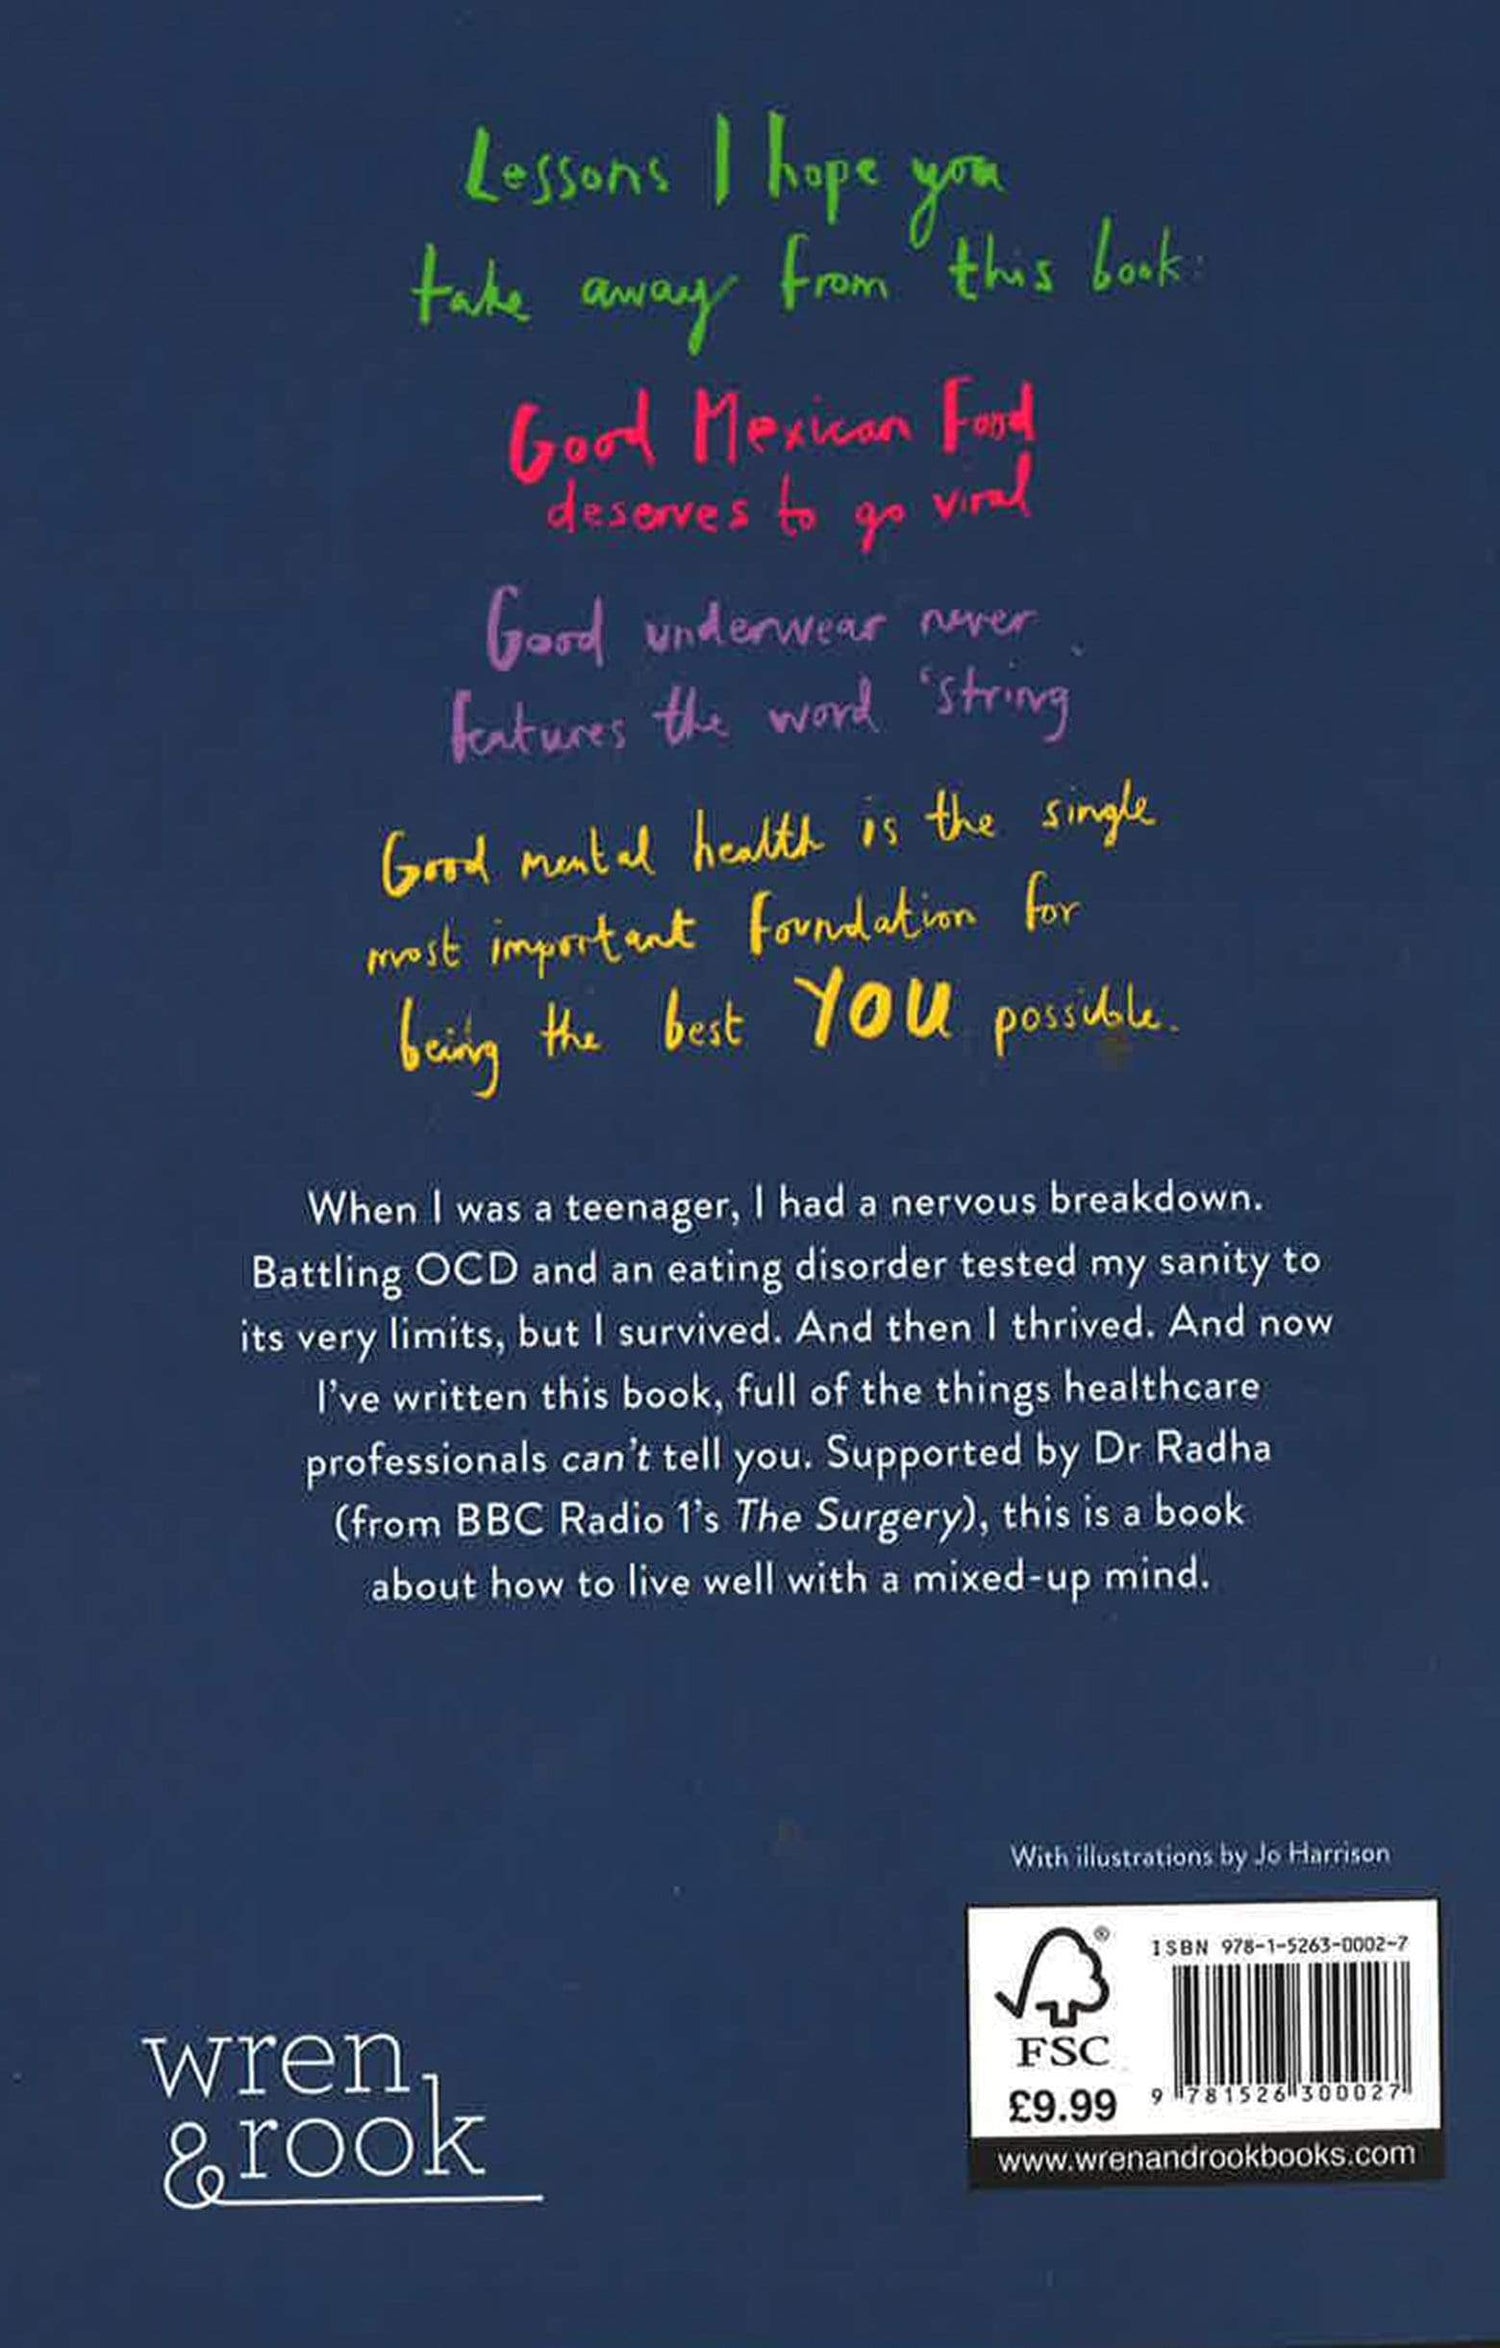 Lessons I hope you
take away from this book:
Good Mexican Food
deserves to go viral
Good underwear never
features the word 'string'
Good mental health is the single
most important foundation for
being the best YOU possible.
When I was a teenager, I had a nervous breakdown.
Battling OCD and an eating disorder tested my sanity to
its very limits, but I survived. And then I thrived. And now
I've written this book, full of the things healthcare
professionals can't tell you. Supported by Dr Radha
(from BBC Radio 1's The Surgery), this is a book
about how to live well with a mixed-up mind.
With illustrations by Jo Harrison
ISBN 978-1-5263-0002-7
®
FSC
£9.99
9 781526 300027
www.wrenandrookbooks.com
wren
&rook